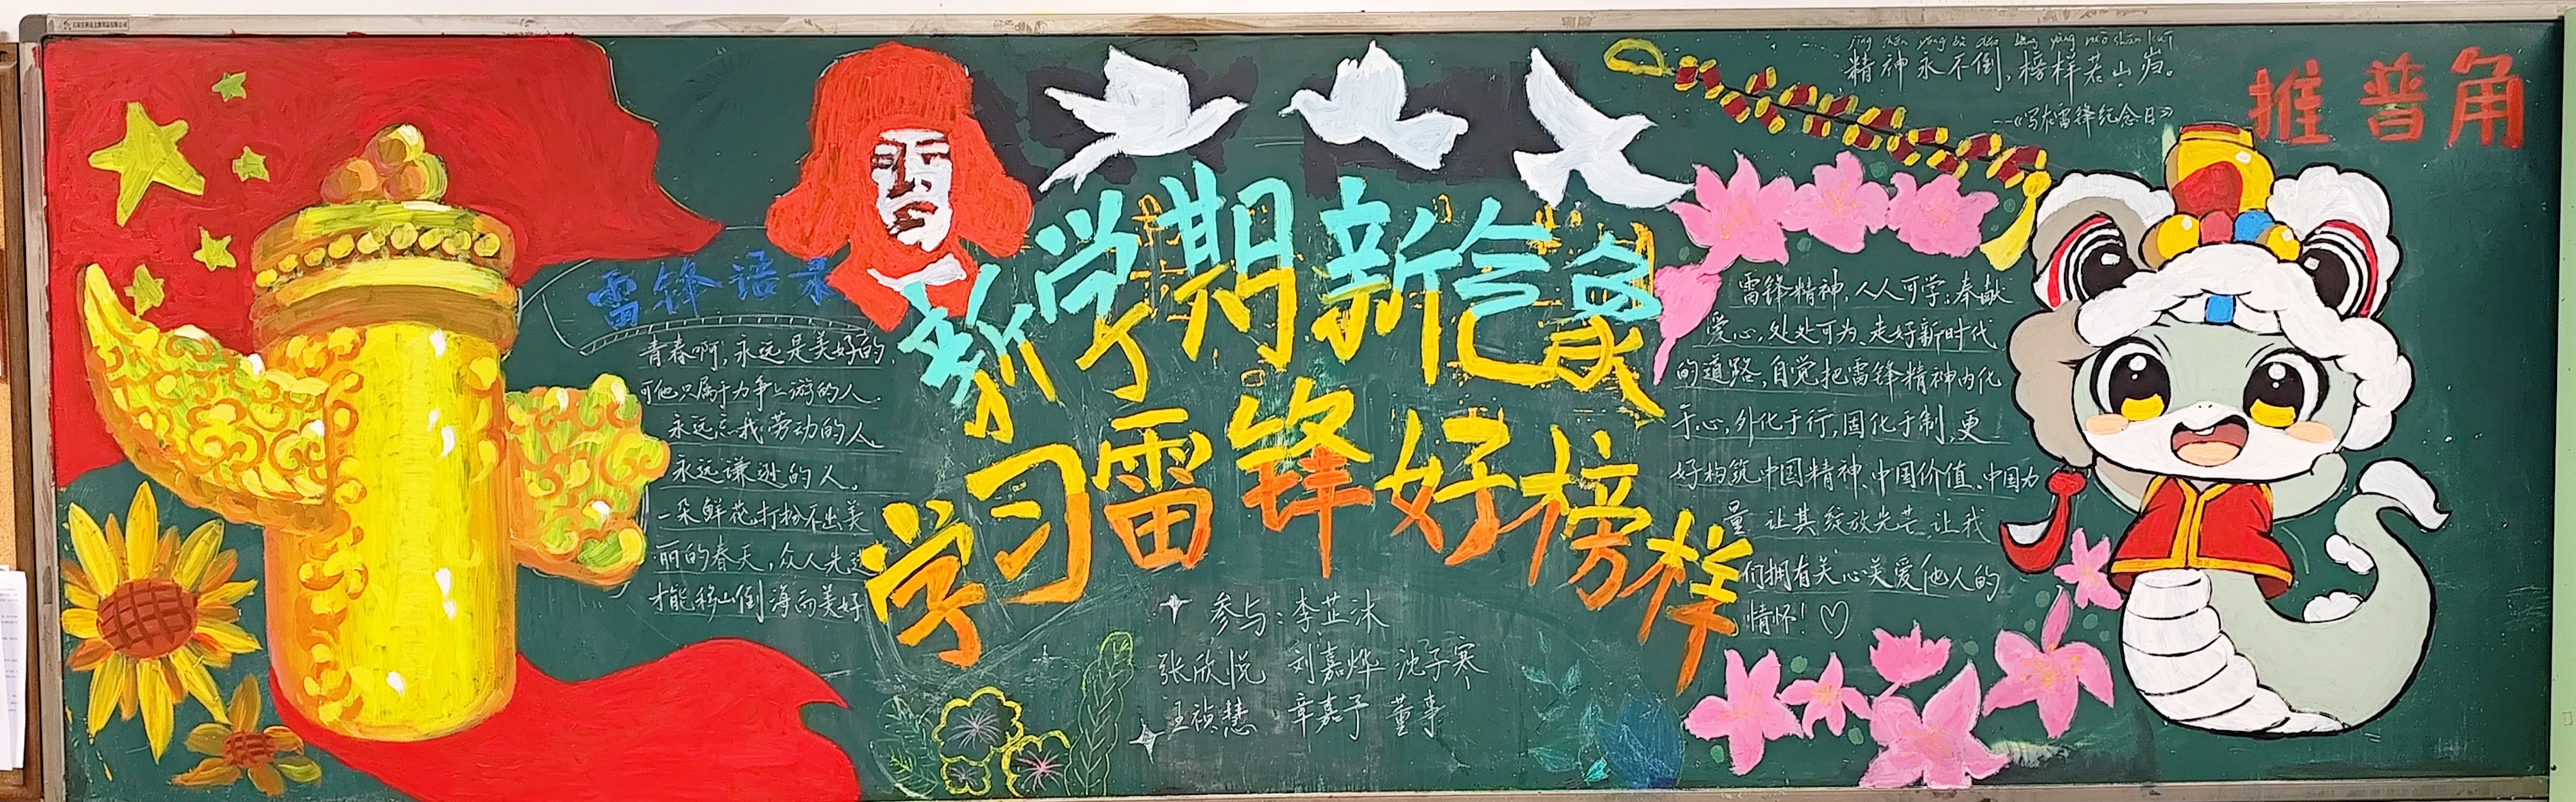 新学期新气象
学习雷锋好榜样
雷锋语录
青春啊,永远是美好的,
可他只属于力争上游的人.
永远忘我劳动的人,
永远谦逊的人。
一朵鲜花打扮不出美
丽的春天,众人先进
才能移山倒海而美好
参与:李芷沐
张欣悦 刘嘉烨 沈子寒
王祯慧 章嘉予 董事
精神永不倒,榜样若山岿。
--《写在雷锋纪念日》
推普角
雷锋精神,人人可学;奉献
爱心,处处可为、走好新时代
的道路,自觉把雷锋精神内化
于心,外化于行,固化于制,更
好构筑中国精神、中国价值、中国力
量 让其绽放光芒,让我
们拥有关心关爱他人的
情怀!♡